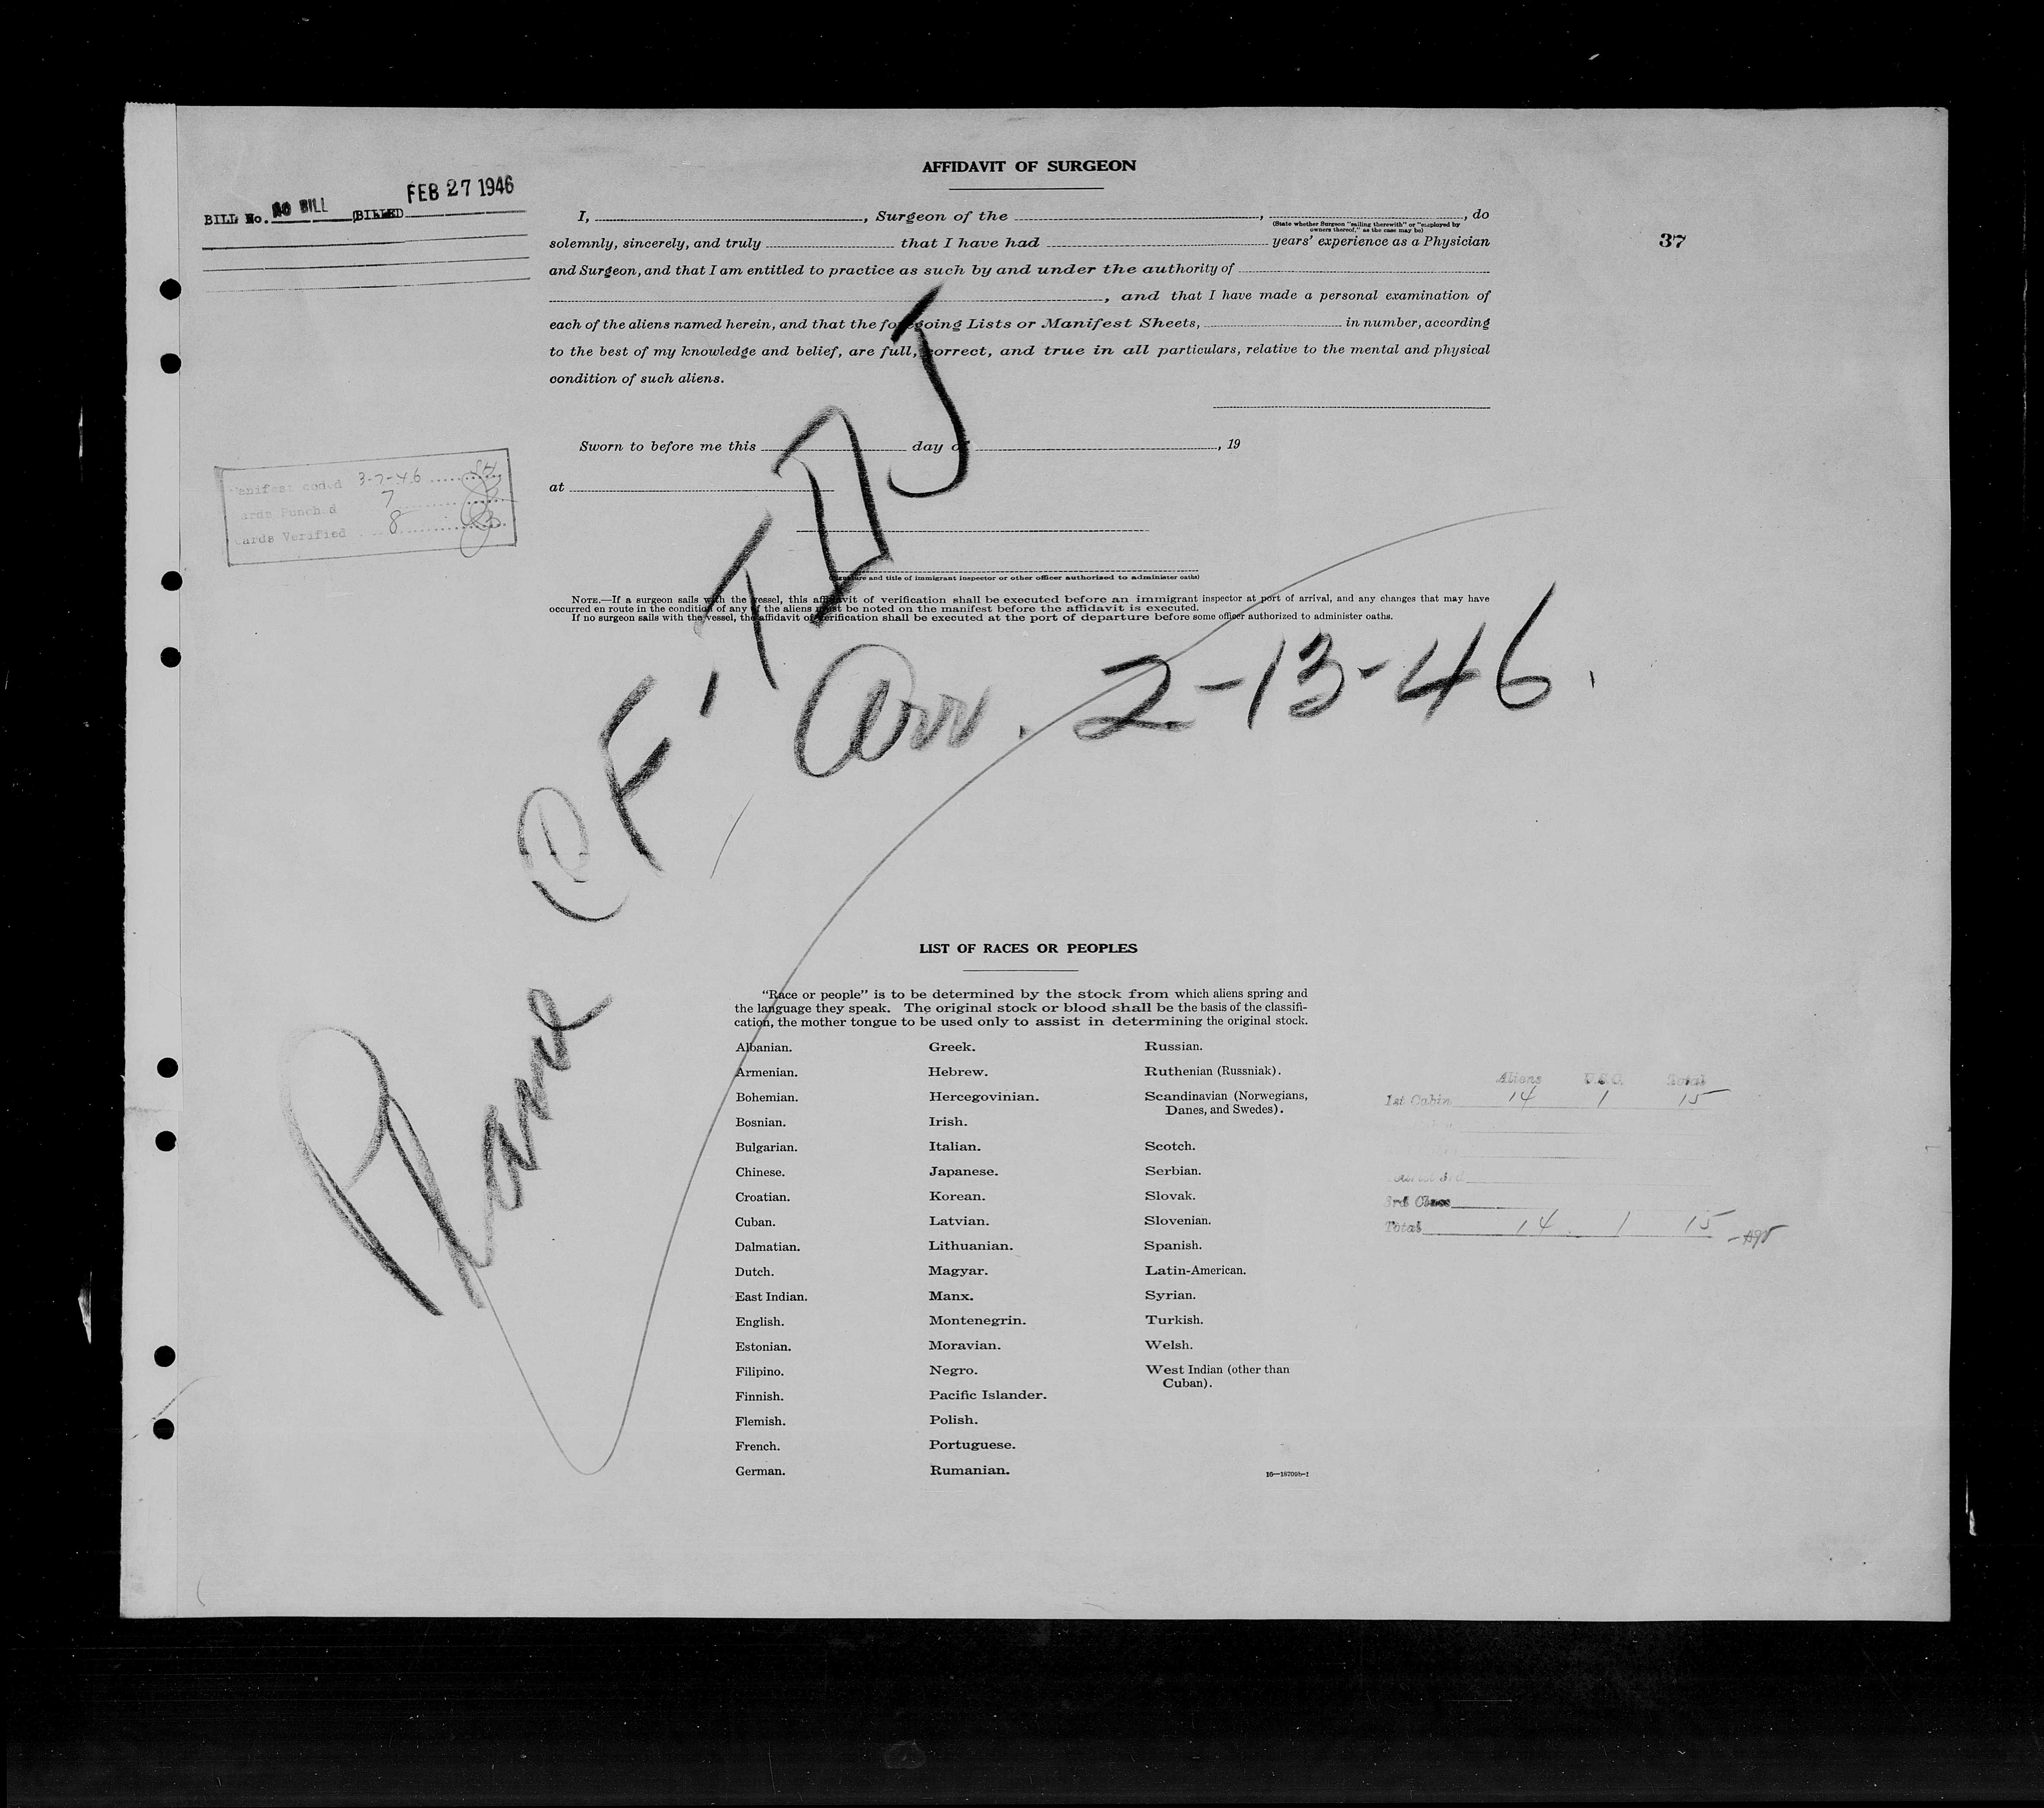 AFFIDAVIT OF SURGEON
BILL No. NO BILL (BILLED FEB 27 1946
37
I, , Surgeon of the , , do
(State whether Surgeon "sailing therewith" or "employed by
owners thereof," as the case may be)
solemnly, sincerely, and truly that I have had years' experience as a Physician
and Surgeon, and that I am entitled to practice as such by and under the authority of
, and that I have made a personal examination of
each of the aliens named herein, and that the foregoing Lists or Manifest Sheets, in number, according
to the best of my knowledge and belief, are full, correct, and true in all particulars, relative to the mental and physical
condition of such aliens.
Sworn to before me this day of , 19
at
Manifest coded 3-7-46
Cards Punched 7
Cards Verified 8
(Signature and title of immigrant inspector or other officer authorized to administer oaths)
NOTE.—If a surgeon sails with the vessel, this affidavit of verification shall be executed before an immigrant inspector at port of arrival, and any changes that may have
occurred en route in the condition of any of the aliens must be noted on the manifest before the affidavit is executed.
If no surgeon sails with the vessel, the affidavit of verification shall be executed at the port of departure before some officer authorized to administer oaths.
Plane CF-TDJ
Arr. 2-13-46.
LIST OF RACES OR PEOPLES
"Race or people" is to be determined by the stock from which aliens spring and
the language they speak. The original stock or blood shall be the basis of the classifi-
cation, the mother tongue to be used only to assist in determining the original stock.
Albanian.
Armenian.
Bohemian.
Bosnian.
Bulgarian.
Chinese.
Croatian.
Cuban.
Dalmatian.
Dutch.
East Indian.
English.
Estonian.
Filipino.
Finnish.
Flemish.
French.
German.
Greek.
Hebrew.
Hercegovinian.
Irish.
Italian.
Japanese.
Korean.
Latvian.
Lithuanian.
Magyar.
Manx.
Montenegrin.
Moravian.
Negro.
Pacific Islander.
Polish.
Portuguese.
Rumanian.
Russian.
Ruthenian (Russniak).
Scandinavian (Norwegians,
Danes, and Swedes).
Scotch.
Serbian.
Slovak.
Slovenian.
Spanish.
Latin-American.
Syrian.
Turkish.
Welsh.
West Indian (other than
Cuban).
16—18709b-1
Aliens U.S.C. Total
1st Cabin 14 1 15
3rd Class
Total 14 1 15